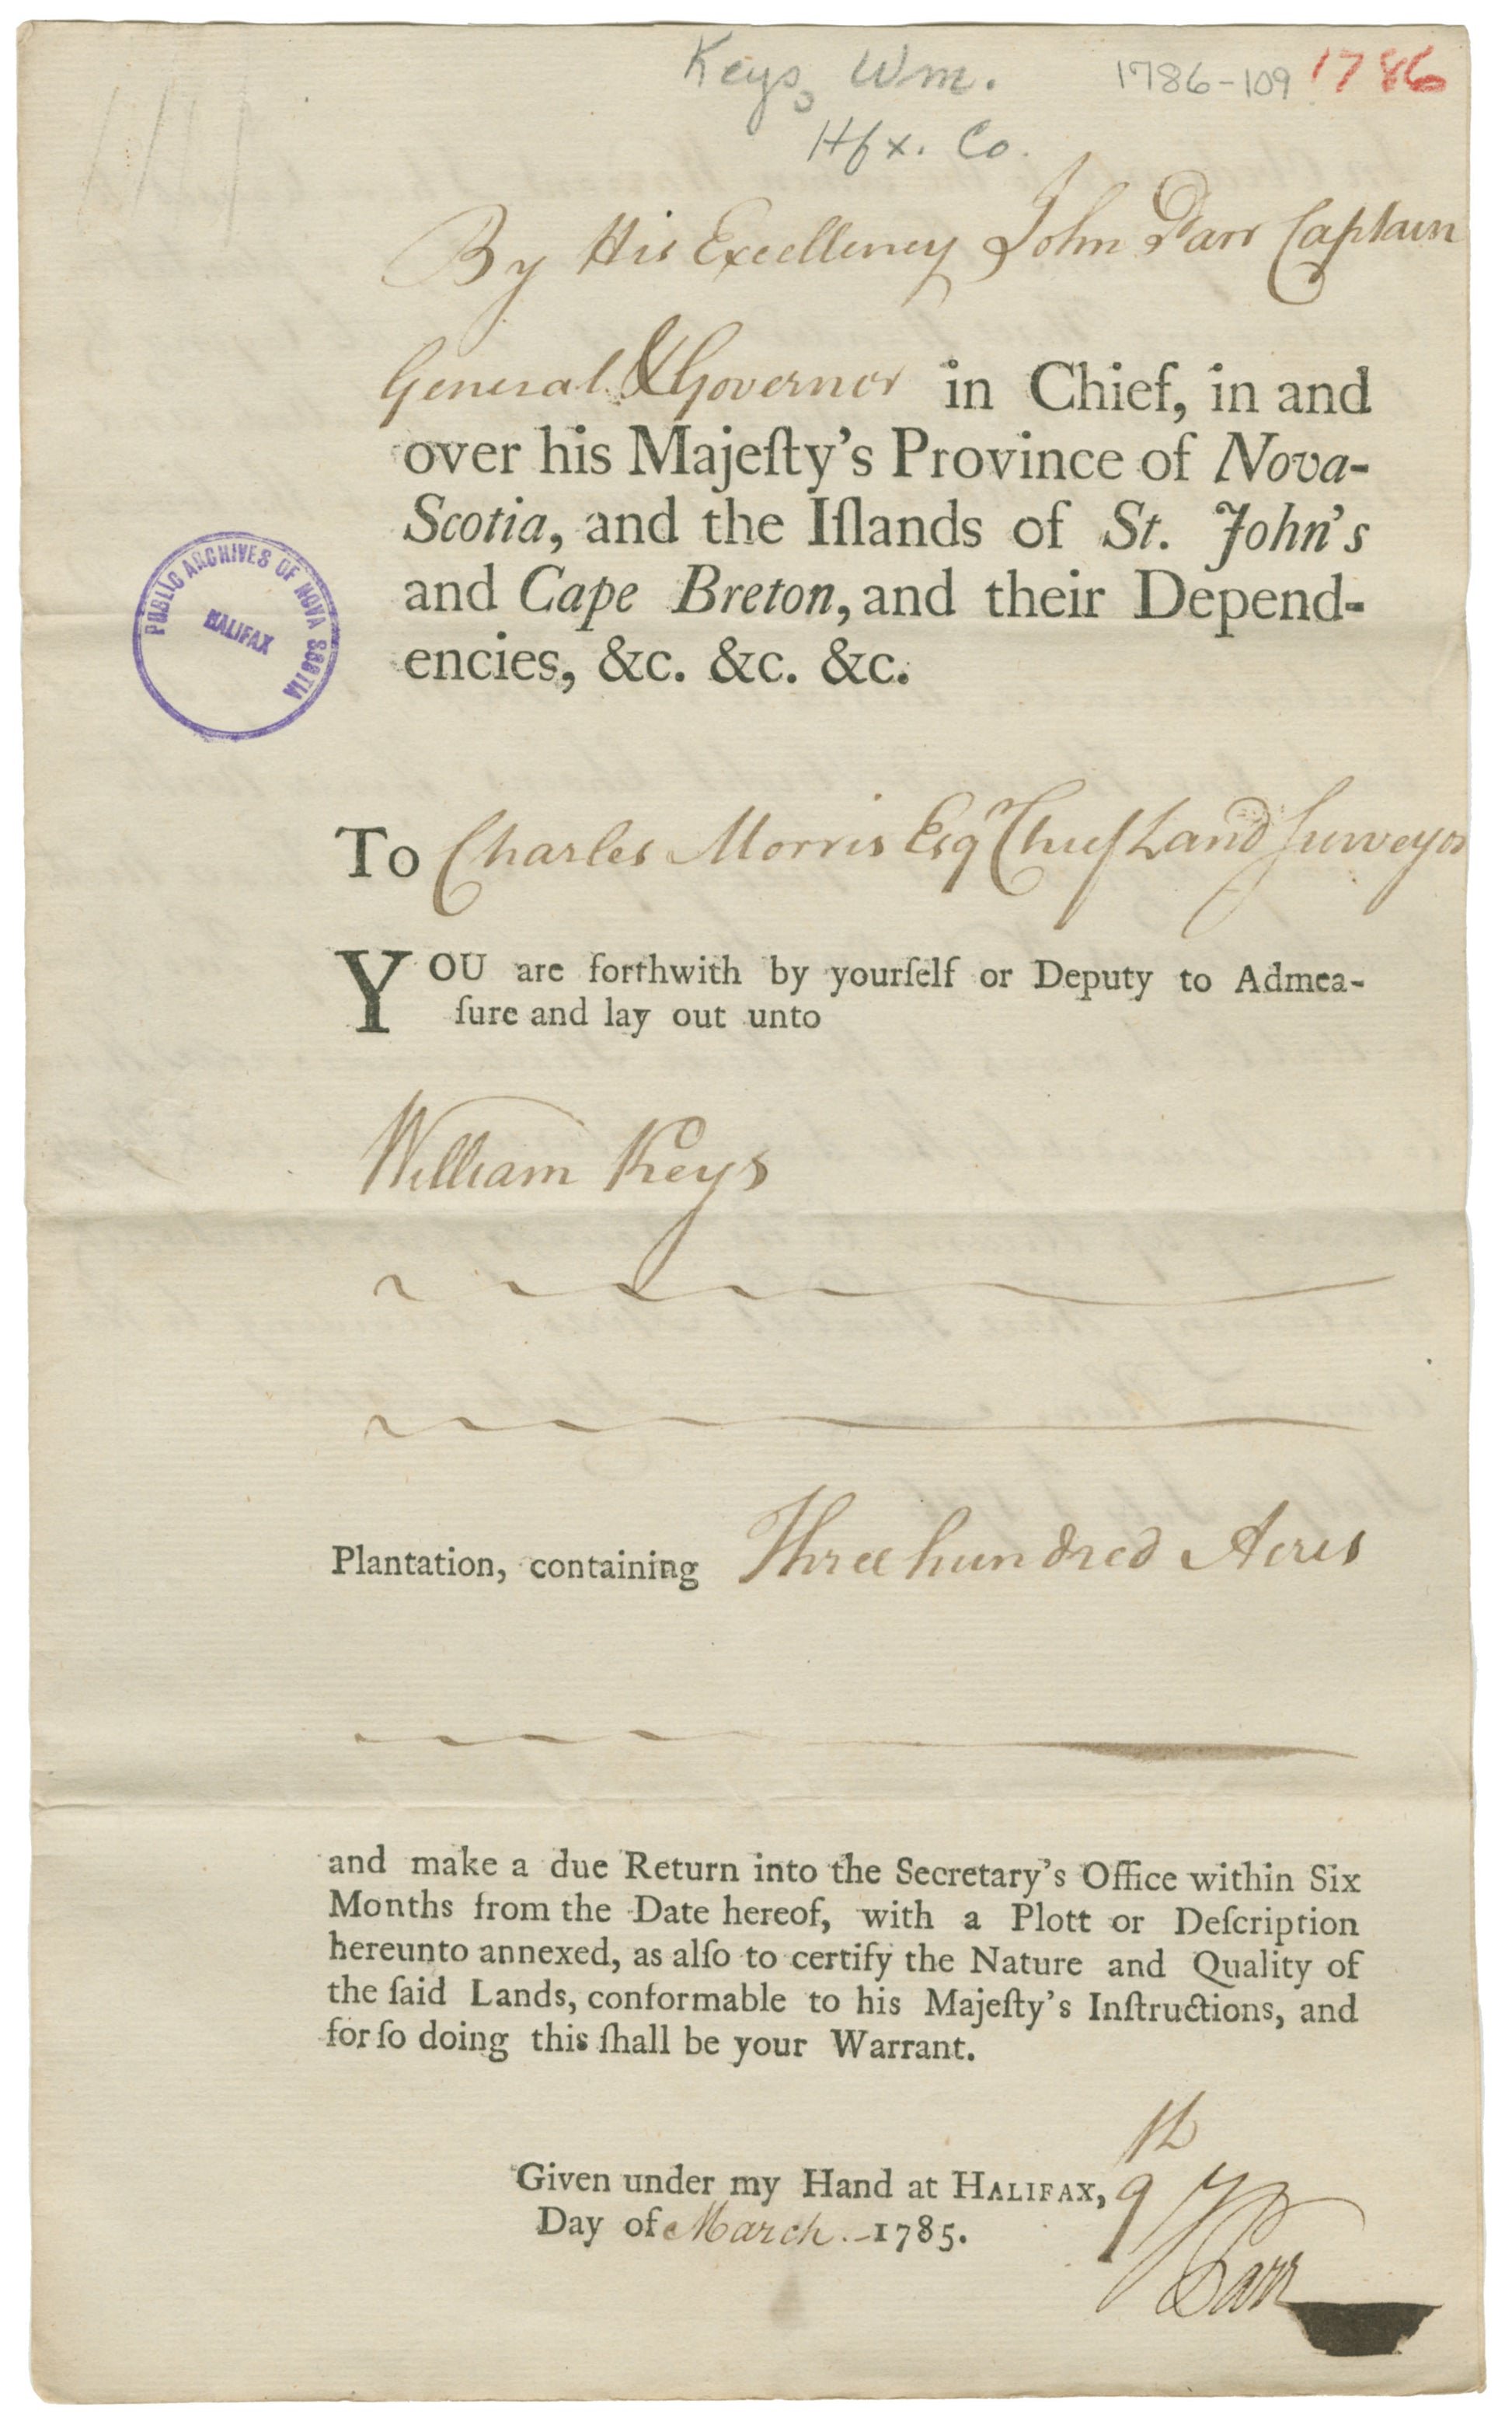 Keys, Wm. 1786-109 1786
Hfx. Co.
By His Excellency John Parr Captain
General & Governor in Chief, in and
over his Majeſty's Province of Nova-
Scotia, and the Iſlands of St. John's
and Cape Breton, and their Depend-
encies, &c. &c. &c.
PUBLIC ARCHIVES OF NOVA SCOTIA
HALIFAX
To Charles Morris Esqr Chief Land Surveyor
YOU are forthwith by yourſelf or Deputy to Admea-
ſure and lay out unto
William Keys
Plantation, containing Three hundred Acres
and make a due Return into the Secretary's Office within Six
Months from the Date hereof, with a Plott or Deſcription
hereunto annexed, as alſo to certify the Nature and Quality of
the ſaid Lands, conformable to his Majeſty's Inſtructions, and
for ſo doing this ſhall be your Warrant.
Given under my Hand at HALIFAX, 9th
Day of March 1785.
J Parr